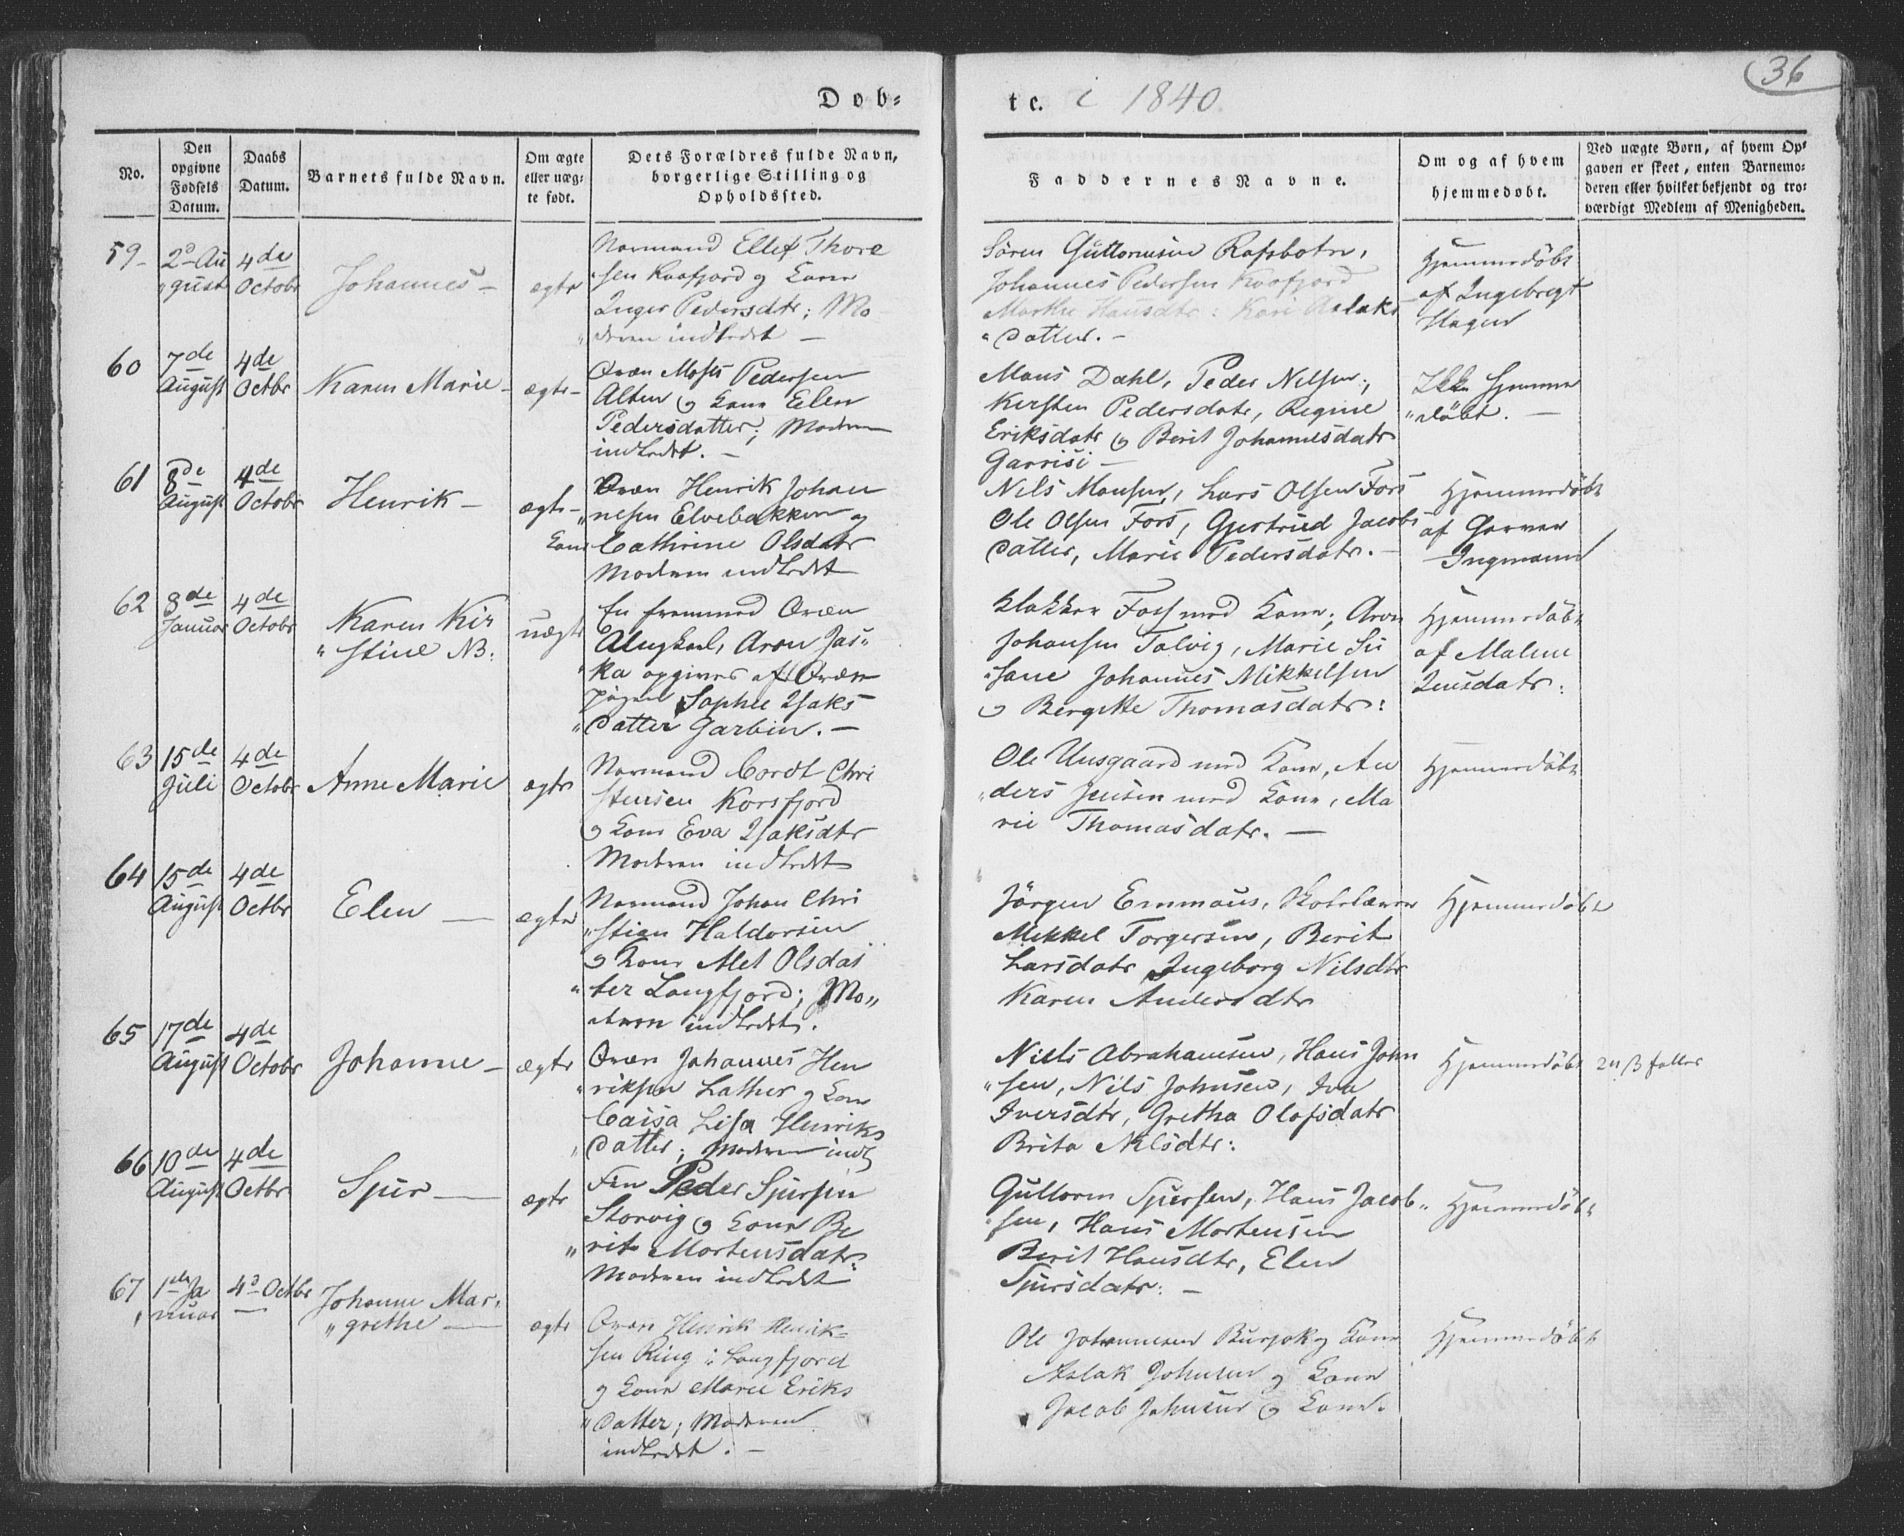 Döb=
te. i 1840
36
No.
Den opgivne Födsels Datum.
Daabs Datum.
Barnets fulde Navn.
Om ægte eller uægte födt.
Dets Forældres fulde Navn, borgerlige Stilling og Opholdssted.
Faddernes Navne.
Om og af hvem hjemmedöbt.
Ved uægte Börn, af hvem Opgaven er skeet, enten Barnemoderen eller hvilket bekjendt og troværdigt Medlem af Menigheden.
59
2d Au
gust
4de
Octobr
Johannes
ægte
Normand Ellef Thore
sen Kaafjord og Kone
Inger Pedersdtr; Mo
deren indledet
Sören Guttormsen Rafsbotn,
Johannes Pedersen Kaafjord
Marthe Hansdtr: Kari Aslaks
datter.
Hjemmedöbt
af Ingebregt
Hagen
60
7de
August
4de
Octbr
Karen Marie
ægte
Qvæn Moses Pedersen
Alten og Kone Elen
Pedersdatter; Moderen
indledet.
Mons Dahl, Peder Nilsen,
Kirsten Pedersdatr, Regine
Eriksdatr og Berit Johannesdatr
Garrisi
Ikke hjemme
döbt.
61
8de
August
4de
Octobr
Henrik
ægte
Qvæn Henrik Johan
nesen Elvebakken og
Kone Cathrine Olsdatr
Moderen indledet
Nils Monsen, Lars Olsen Fors
Ole Olsen Fors, Gjertrud Jacobs
datter, Marie Pedersdatr.
Hjemmedöbt
af Garver
Ingmann
62
8de
Januar
4de
Octobr
Karen Kir
stine NB:
uægte
En fremmed Qvæn
Ungkarl, Aron Jas
ka opgives af Qvæn
Pigen Sophie Isaks
datter Garbin.
Klokker Foss med Kone; Aron
Johansen Talvig, Marie Su
sane Johannes Mikkelsen
og Bergitte Thomasdatr:
Hjemmedöbt
af Malene
Jensdatr:
63
15de
Juli
4de
Octobr
Anne Marie
ægte
Normand Cordt Chri
stensen Korsfjord
og Kone Eva Isaksdtr
Moderen indledet
Ole Uusgaard med Kone, An
ders Jensen med Kone, Ma
rie Thomasdatr.
Hjemmedöbt
64
15de
August
4de
Octbr
Elen
ægte
Normand Johan Chri
stian Haldorsen
og Kone Alet Olsdat
ter Langfjord; Mo
deren indledet.
Jörgen Emmaus, Skolelærer
Mikkel Torgersen, Berit
Larsdatr Ingeborg Nilsdtr
Karen Andersdtr
Hjemmedöbt
65
17de
August
4de
Octobr
Johanne
ægte
Qvæn Johannes Hen
riksen Lather og Kone
Caisa Lisa Henriks
datter; Moderen indl
Niels Abrahamsen, Hans John
sen, Nils Johnsen, Iva
Iversdtr, Gretha Olofsdatr
Brita Nilsdtr:
Hjemmedöbt
66
10de
August
4de
Octbr
Spur
ægte
Fin Peder Spursen
Storvig og Kone Be
rit Mortensdatr.
Moderen indledet
Guttorm Spursen, Hans Jacob
sen, Hans Mortensen
Berit Hansdtr, Elen
Spursdatr:
Hjemmedöbt
67
1ste Ja
nuar
4d Octbr
Johanne Mar
grethe
ægte
Qvæn Henrik Henrik
sen Ring i Langfjord
og Kone Marie Eriks
datter; Moderen
indledet.
Ole Johannesen Bursjok og Kone
Aslak Johnsen og Kone
Jacob Johnsen og Kone.
Hjemmedöbt